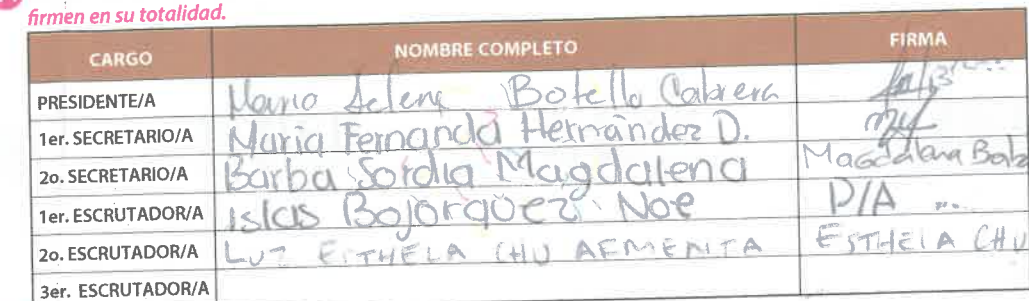 firmen en su totalidad.
CARGO NOMBRE COMPLETO FIRMA
PRESIDENTE/A Botello Cabrera
1er. SECRETARIO/A Maria Fernanda Hernández D.
2o. SECRETARIO/A Barba Sordia Magdalena Magdalena Barba
1er. ESCRUTADOR/A Islas Bojorqüez Noe P/A
2o. ESCRUTADOR/A LUZ ESTHELA CHU ARMENTA ESTHELA CHU
3er. ESCRUTADOR/A